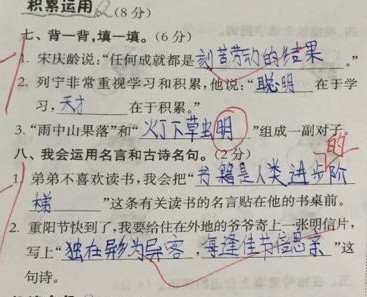 积累运用 (8分)
七、背一背,填一填。(6分)
1. 宋庆龄说:“任何成就都是刻苦劳动的结果。”
2. 列宁非常重视学习和积累,他说:“聪明在于学
习,天才在于积累。”
3. “雨中山果落”和“灯下草虫明”组成一副对子。
八、我会运用名言和古诗名句。(2分)
的
1. 弟弟不喜欢读书,我会把“书籍是人类进步阶
梯”这条有关读书的名言贴在他的书桌前。
2. 重阳节快到了,我要给住在外地的爷爷寄上一张明信片,
写上“独在异乡为异客,每逢佳节倍思亲”这
句诗。